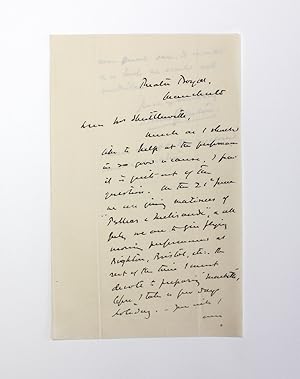 Theatre Royal,
Manchester
Dear Mrs
Much as I should
like to help at the performance
in so good a cause, I fear
it is quite out of the
question. On the 21st June
we are giving matinees of
"Pelleas & Melisande", & all
July we are to give flying
morning performances at
Brighton, Bristol, etc. the
rest of the time I must
devote to preparing "Macbeth,
before I take a few days
holiday. — You will I